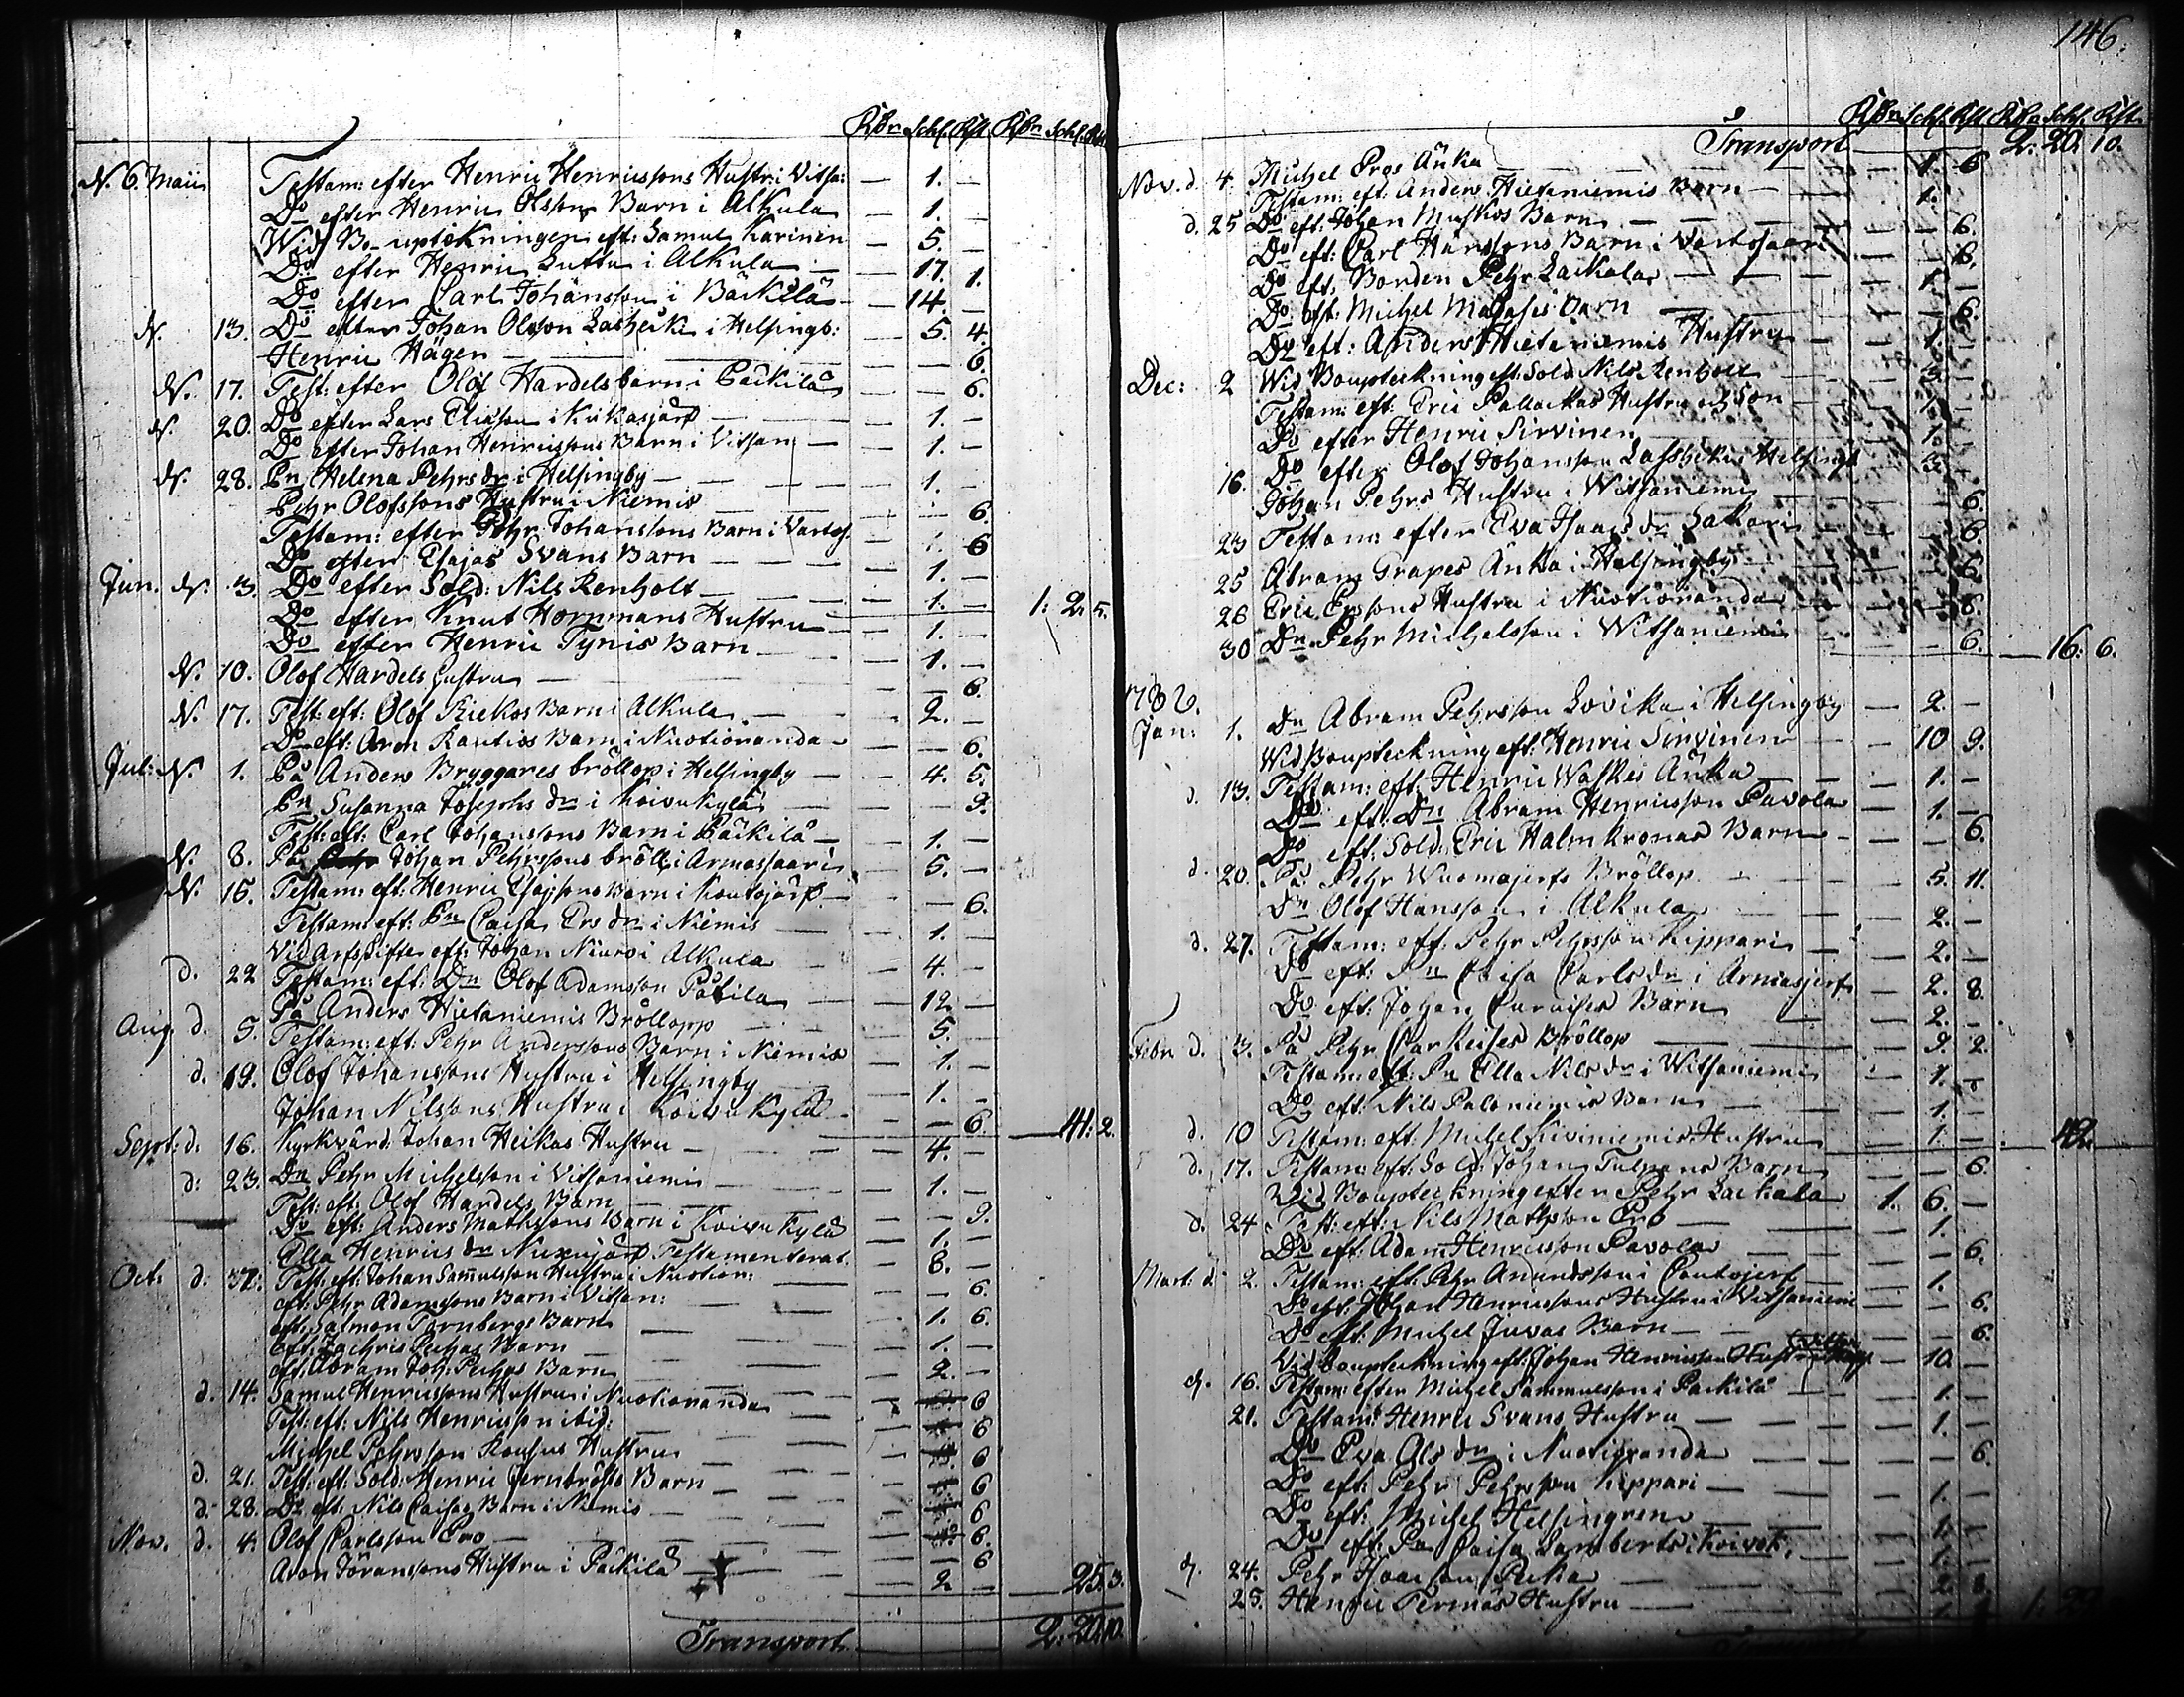 Rdr Schl. Rst. Rdr Schl. Rst.
d. 6. Maii Testam: efter Henric Henricssons Hustru i Vitsa: — 1. —
Do efter Henric Olssons Barn i Alkula — 1. —
Wid Bo-uptekningen eft: Samuel Karinen — 5. —
Do efter Henric Lutta i Alkula — 17. 1.
Do efter Carl Johansson i Bäckilä — 14. —
d. 13. Do efter Johan Olofson Lasheiki i Helsingb: — 5. 4.
Henric Hägen — — 6.
d. 17. Test: efter Olof Hardels barn i Päckilä — — 6.
d. 20. Do efter Lars Eliæson i Kukasjärf — 1. —
Do efter Johan Henricssons Barn i Vitsan — 1. —
d. 28. Pn Helena Pehrs dr i Helsingby — 1. —
Pehr Olofssons Hustru i Niemis — — 6.
Testam: efter Pehr Johanssons Barn i Vartos. — 1. 6
Do efter Esajas Svans Barn — 1. —
Jun. d. 3. Do efter Sold: Nils Renholt — 1. — 1: 2. 5.
Do efter Knut Hornmans Hustru — 1. —
Do efter Henric Tynis Barn — 1. —
d. 10. Olof Hardels hustru — — 6.
d. 17. Test: eft: Olof Kiekos Barn i Alkula — 2. —
Do eft: Aron Rautios Barn i Nuotioranda — — 6.
Jul: d. 1. På Anders Bryggares bröllop i Helsingby — 4. 5.
Pn Susanna Josephs dr i Koivukylä — — 9.
Test: eft: Carl Johanssons Barn i Päckilä — 1. —
d. 8. På Johan Pehrssons bröll: i Armassaari — 5. —
d. 15. Testam: eft: Henric Esajssons Barn i Koutojärf — — 6.
Testam: eft: Pn Caisa Ers dr i Niemis — 1. —
Vid Arfskifte eft: Johan Niuro i Alkula — 4. —
d. 22 Testam: eft: Dn Olof Adamsson Päckilä — 12 —
På Anders Hietaniemis Bröllopp — 5. —
Aug. d. 5. Testam: eft: Pehr Anderssons Barn i Niemis — 1. —
d. 19. Olof Johanssons Hustru i Helsingby — 1. —
Johan Nilssons Hustru i Koivukylä — — 6. — 41: 2.
Sept: d. 16. Kyrkvärd: Johan Heikas Hustru — 4. —
d: 23. Dn Pehr Michelsson i Vitsaniemi — 1. —
Test: eft: Olof Hardels Barn — — 9.
Do eft: Anders Mathssons Barn i Koivukylä — 1. —
Ella Henrics dr Testamenterat. — 8. —
Oct: d. Test: eft: Johan Samuelsson Hustru i Nuotior: — — 6.
eft: Pehr Adamssons Barn i Vitsan: — 1. 6.
eft: Salmon Törnbergs Barn — 1. —
Eft: Zachris Pechas Barn — 2. —
eft: Abram Joh: Pechas Barn
d. 14. Samuel Henricssons Hustru i Nuotioranda — 6
Test: eft: Nils Henricsson ibid: — 6
Michel Pehrsson Hustru — 6
d. 21. Test: eft: Sold: Henric Jernbrösts Barn — 6
d. 28. Do eft: Nils Caisas Barn i Niemis — 6
Nov. d. 4. Olof Carlsson Pro — 6.
Aron Göranssons Hustru i Päckilä — 6
2 — 25. 3.
Transport — 2. 20. 10.
146.
Rdr Schl. Rst. Rdr Schl. Rst.
Transport — 2: 20. 10.
Nov. d. 4. Michel Pros Änka — 1. 6
Testam: eft: Anders Hietaniemis Barn — 1.
d. 25 Do eft: Johan Muskos Barn — — 6.
Do eft: Carl Hanssons Barn i Vartosaari — 6.
Do eft: Bonden Pehr Lackala — 1. —
Do eft: Michel Barn — 6.
Do eft: Anders Hietaniemis Hustru — 1.
Dec: 2 Wid Boupteckning eft: Sold: Nils Renholt —
Testam: eft: Eric Pallackas Hustru och Son — 1.
Do efter Henric Sirvinen — 1.
Do efter Olof Johansson Lassheiki Helsingb — 3.
16. Johan Pehrs Hustru i Witsaniemi — 6.
23 Testam: efter Eva Isaacs dr Lakari — 6.
25 Abram Grapes Änka i Helsingby — 6.
26 Eric Erssons Hustru i Nuotioranda — 6.
30 Dn Pehr Michelsson i Witsaniemi — 6. — 16: 6.
Jan: 1. Dn Abram Pehrsson Lovika i Helsingby — 2. —
Wid Boupteckning eft: Henric Sirvinen — 10 9.
d. 13. Testam: eft: Henric Waskes Änka — 1. —
Do eft: Dn Abram Henricsson Pavola — 1. —
Do eft: Sold: Eric Halmkronas Barn — — 6.
d. 20. På Pehr Wuomajerfs Bröllop — 5. 11.
Dn Olof Hansson i Alkula — 2. —
d. 27. Testam: eft: Pehr Pehrsson Kippari — 2. —
Do eft: Pn Caisa Carls dr i Armasjerf — 2. 8.
Do eft: Johan Barn — 2. —
Febr. d. 3. På Pehr Bröllop — 9. 2
Testam: eft: Pn Ella Nils dr i Witsaniemi — 1. —
Do eft: Nils Paloniemis Barn — 1. —
d. 10 Testam: eft: Michel Kiviniemis Hustru — 1. —
d. 17. Testam: eft: Sold: Johan Tulpans Barn — — 6.
Wid Boupteckning efter Pehr Lackala 1. 6. —
d. 24 Test: eft: Nils Mattsson Pro — 1.
Do eft: Adam Henricsson Pavola — — 6.
Mart: d. 2. Testam: eft: Pehr Anundsson i Coutojerf — 1.
Do eft: Johan Henricssons Hustru i Vitsaniemi — — 6.
Do eft: Michel Juvas Barn — — 6.
Vid Boupteckning eft: Johan Henricsson — 10 —
d. 16. Testam: efter Michel Sammuelsson i Päckilä — 1. —
21. Testam: Henric Svans Hustru — 1. —
Do Eva Ols dr i Nuotioranda — — 6.
Do eft: Pehr Pehrsson Kippari — 1. —
Do eft: Michel Helsingren — 1. —
Do eft: Pn Caisa Lamberts i Koivok: — 1. —
d. 24. Pehr Isacsson Pecka — 2. 8.
25. Henric Permäs Hustru —